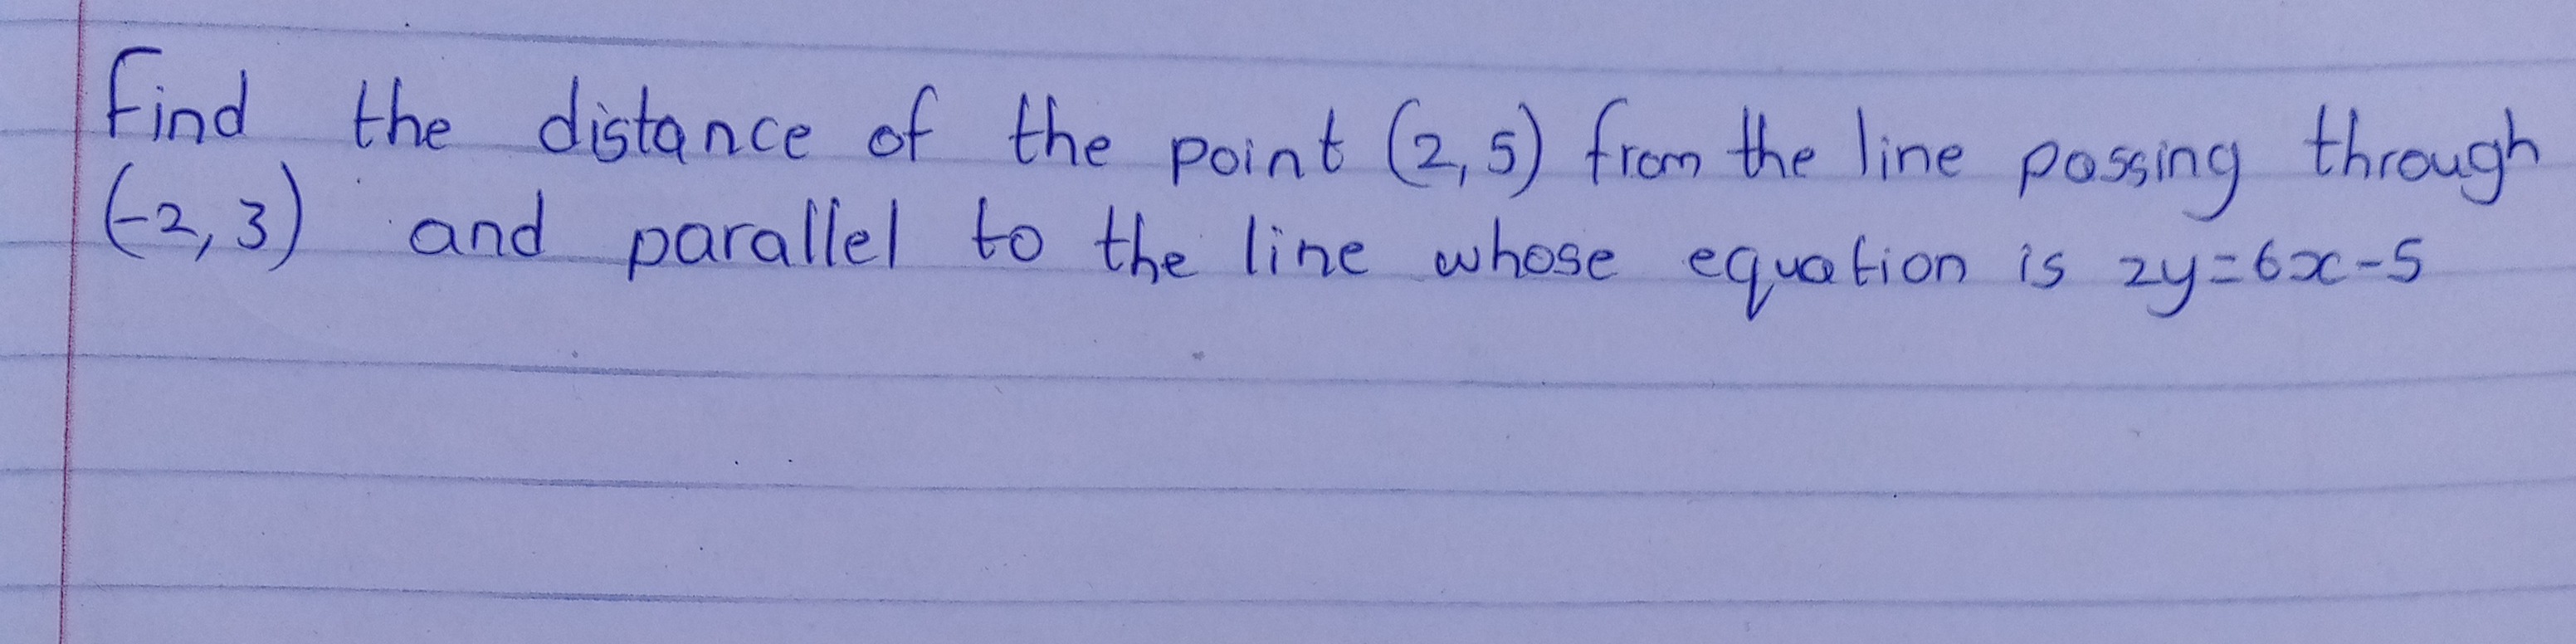 Find the distance of the point (2,5) from the line passing through
(-2,3) and parallel to the line whose equation is 2y=6x-5